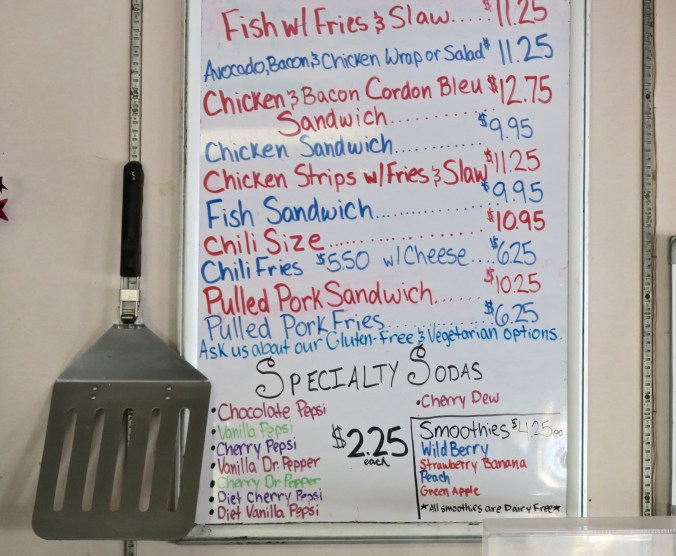 Fish w/ Fries & Slaw..... $11.25
Avocado, Bacon & Chicken Wrap or Salad $11.25
Chicken & Bacon Cordon Bleu $12.75
Sandwich..........
Chicken Sandwich.......... $9.95
Chicken Strips w/ Fries & Slaw $11.25
Fish Sandwich............ $9.95
Chili Size.................. $10.95
Chili Fries $5.50 w/ Cheese.... $6.25
Pulled Pork Sandwich....... $10.25
Pulled Pork Fries............ $6.25
Ask us about our Gluten-Free & Vegetarian options.
Specialty Sodas
• Chocolate Pepsi
• Vanilla Pepsi
• Cherry Pepsi
• Vanilla Dr. Pepper
• Cherry Dr. Pepper
• Diet Cherry Pepsi
• Diet Vanilla Pepsi
• Cherry Dew
$2.25
each
Smoothies $4.25 ea
Wild Berry
Strawberry Banana
Peach
Green Apple
*All smoothies are Dairy Free*